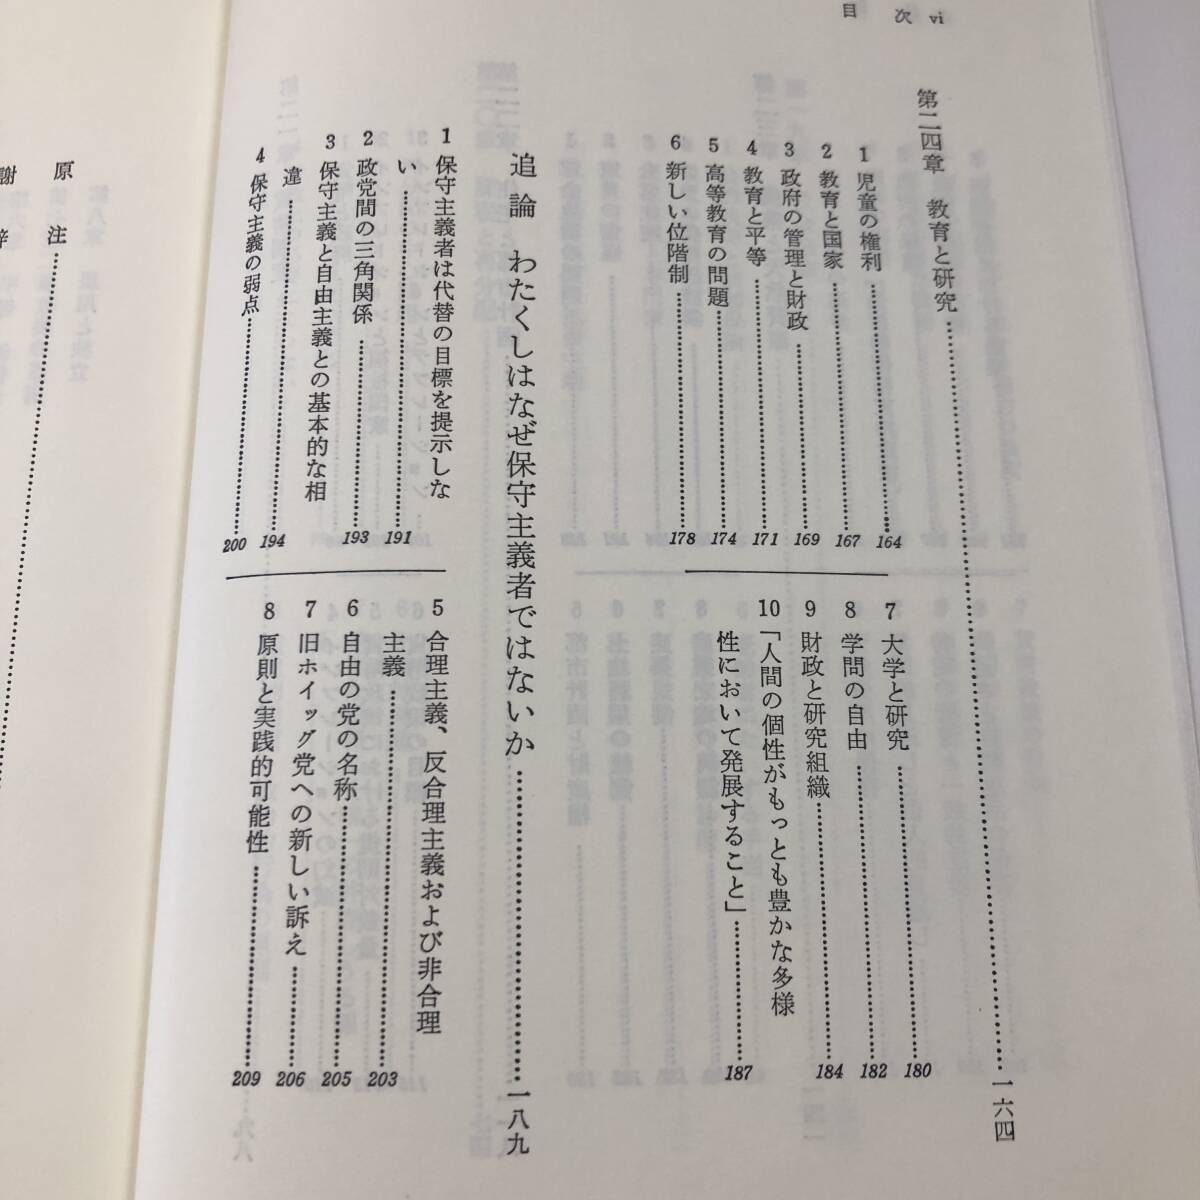 目次 vi
第二四章 教育と研究……一六四
1 児童の権利……164
2 教育と国家……167
3 政府の管理と財政……169
4 教育と平等……171
5 高等教育の問題……174
6 新しい位階制……178
7 大学と研究……180
8 学問の自由……182
9 財政と研究組織……184
10 「人間の個性がもっとも豊かな多様
性において発展すること」……187
追論 わたくしはなぜ保守主義者ではないか……一八九
1 保守主義者は代替の目標を提示しな
い……191
2 政党間の三角関係……193
3 保守主義と自由主義との基本的な相
違……194
4 保守主義の弱点……200
5 合理主義、反合理主義および非合理
主義……203
6 自由の党の名称……205
7 旧ホイッグ党への新しい訴え……206
8 原則と実践的可能性……209
原注……
謝辞